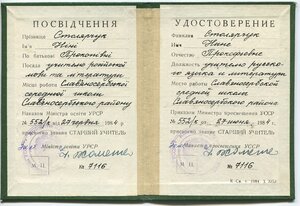 ПОСВІДЧЕННЯ
Прізвище Столярчук
Ім'я Ніні
По батькові Прокопівні
Посада учителю російської
мови та літератури
Місце роботи Славяносербської
середньої школи
Славяносербського району
Наказом Міністра освіти УРСР
№ 552/к 27 1984 р.
присвоєно звання СТАРШИЙ УЧИТЕЛЬ
Міністр освіти УРСР
М. П. № 7116
УДОСТОВЕРЕНИЕ
Фамилия Столярчук
Имя Нине
Отчество Прокофьевне
Должность учителю русско-
го языка и литературы
Место работы Славяносербской
средней школы
Славяносербского района
Приказом Министра просвещения УССР
№ 552/к 27 1984 г.
присвоено звание СТАРШИЙ УЧИТЕЛЬ
Министр просвещения УССР
М. П. № 7116